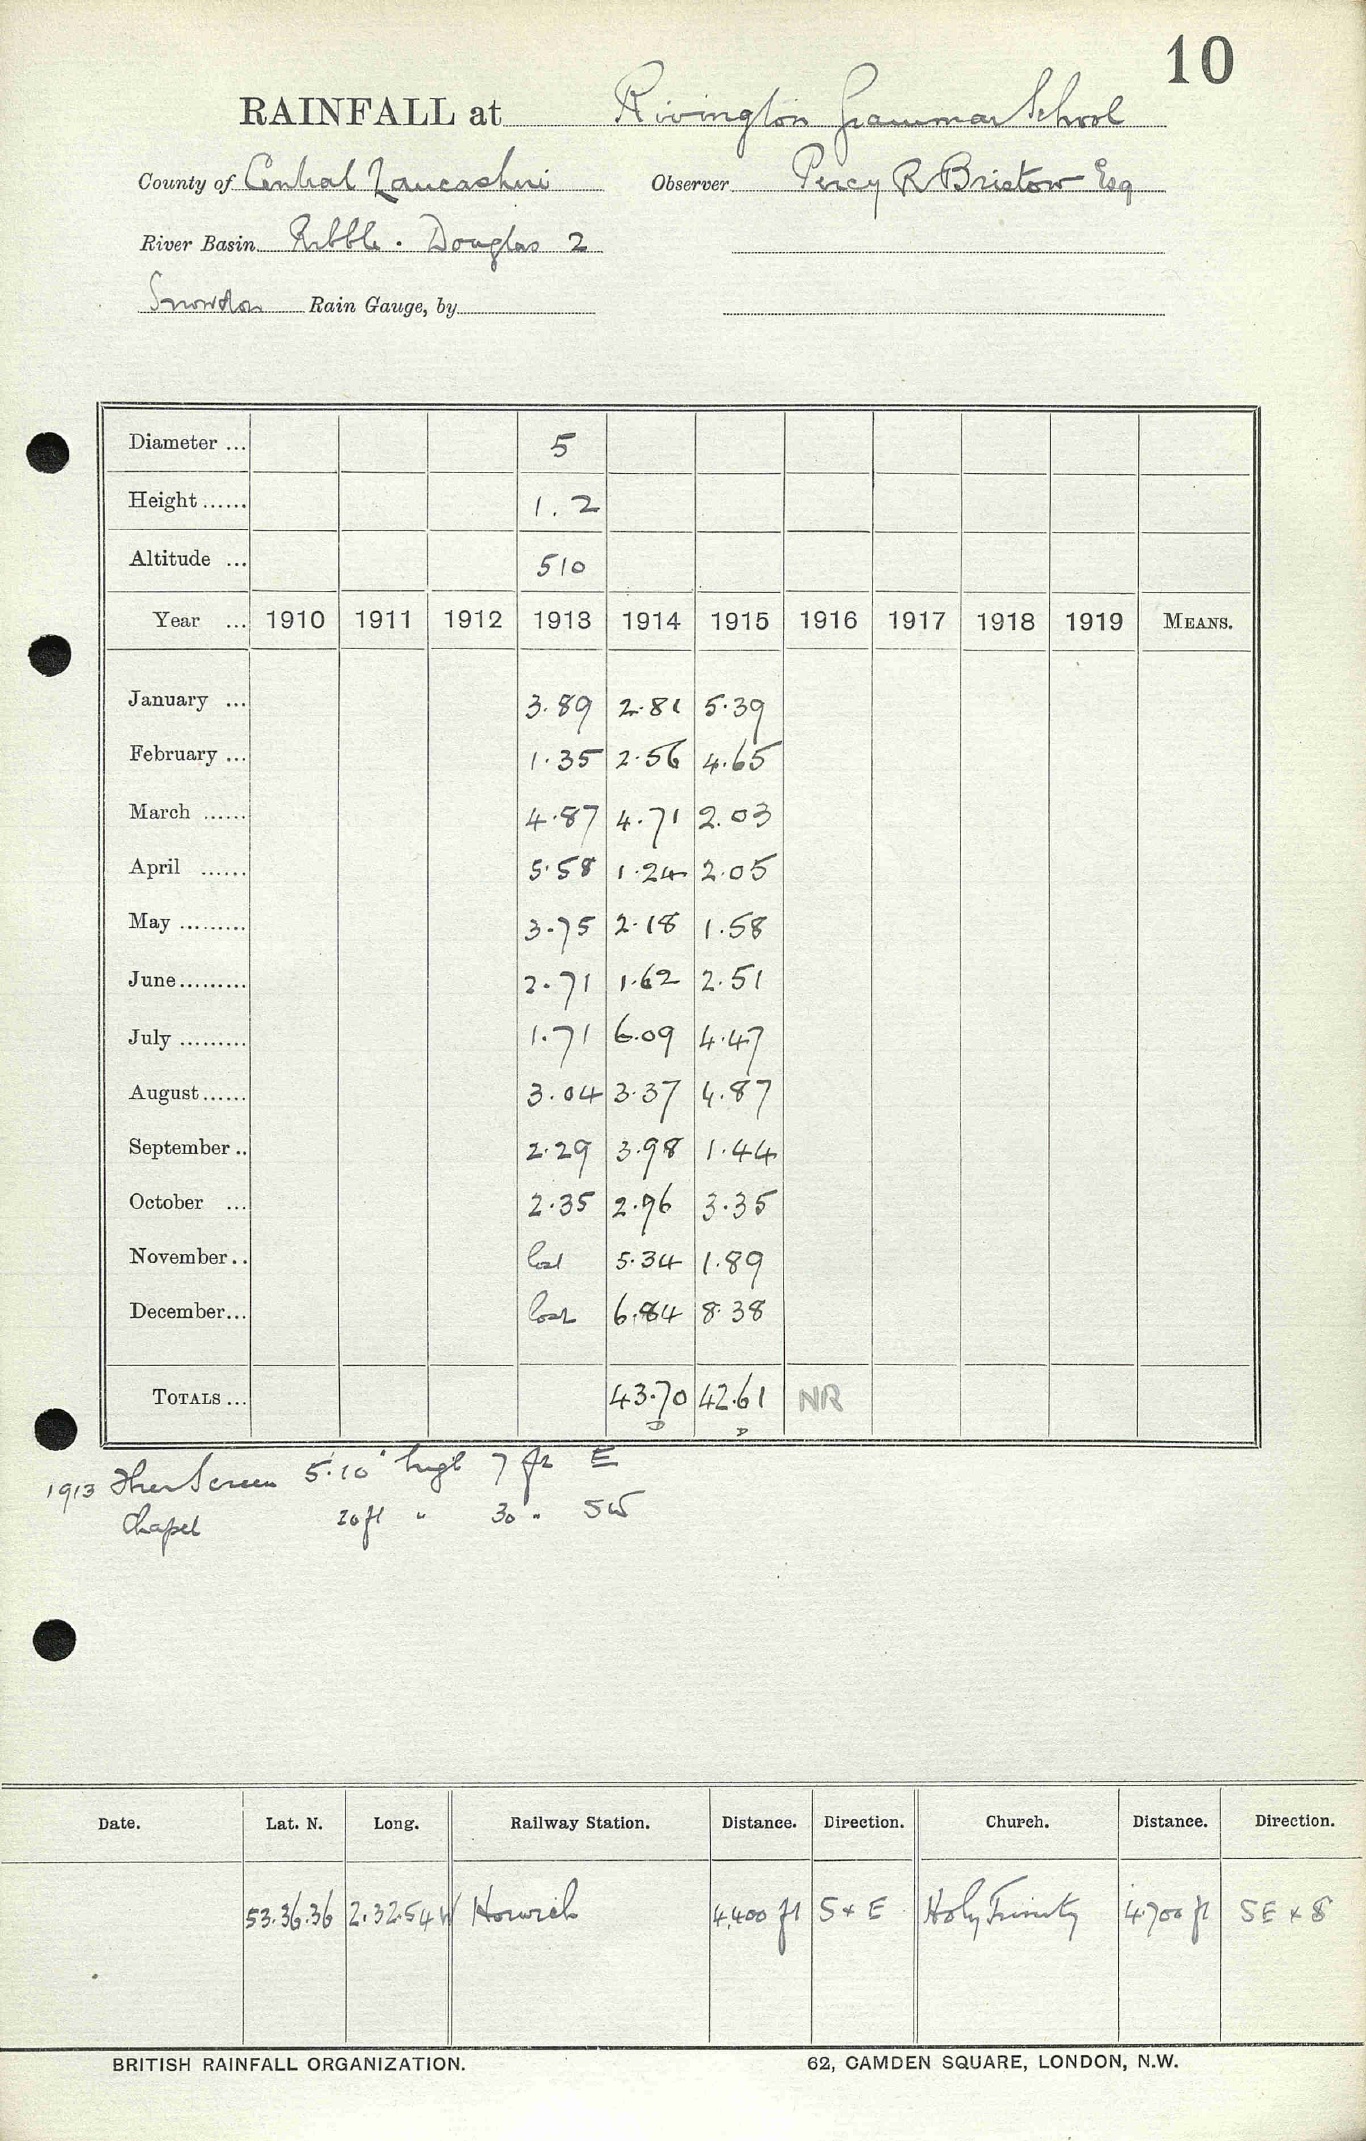 10
RAINFALL at Rivington Grammar School
County of Central Lancashire Observer Percy R Bristow Esq
River Basin Ribble . Douglas 2
Snowdon Rain Gauge, by
Diameter ... 5
Height ...... 1.2
Altitude ... 510
Year ... 1910 1911 1912 1913 1914 1915 1916 1917 1918 1919 MEANS.
January ... 3.89 2.81 5.39
February ... 1.35 2.56 4.65
March ...... 4.87 4.71 2.03
April ...... 5.58 1.24 2.05
May ......... 3.75 2.18 1.58
June......... 2.71 1.62 2.51
July ......... 1.71 6.09 4.47
August...... 3.04 3.37 4.87
September .. 2.29 3.98 1.44
October ... 2.35 2.96 3.35
November.. lost 5.34 1.89
December... lost 6.84 8.38
TOTALS ... 43.70 42.61 NR
D D
1913 Ther Screen 5.10" high 7 ft E
Chapel 20 ft " 30 " SW
Date. Lat. N. Long. Railway Station. Distance. Direction. Church. Distance. Direction.
53.36.36 2.32.54 W Horwich 4,400 ft S x E Holy Trinity 4,700 ft SE x S
BRITISH RAINFALL ORGANIZATION. 62, CAMDEN SQUARE, LONDON, N.W.